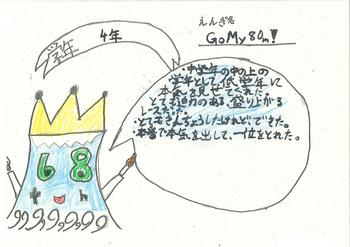 えんぎ名
GoMy80m!
学年
4年
・中学年の中の上の
学年として、低学年に
本気を見せてくれた。
とても迫力のある、盛り上がる
レースだった。
・とてもきんちょうしたけれどできた。
・本番で本気を出して、一位をとれた。
68